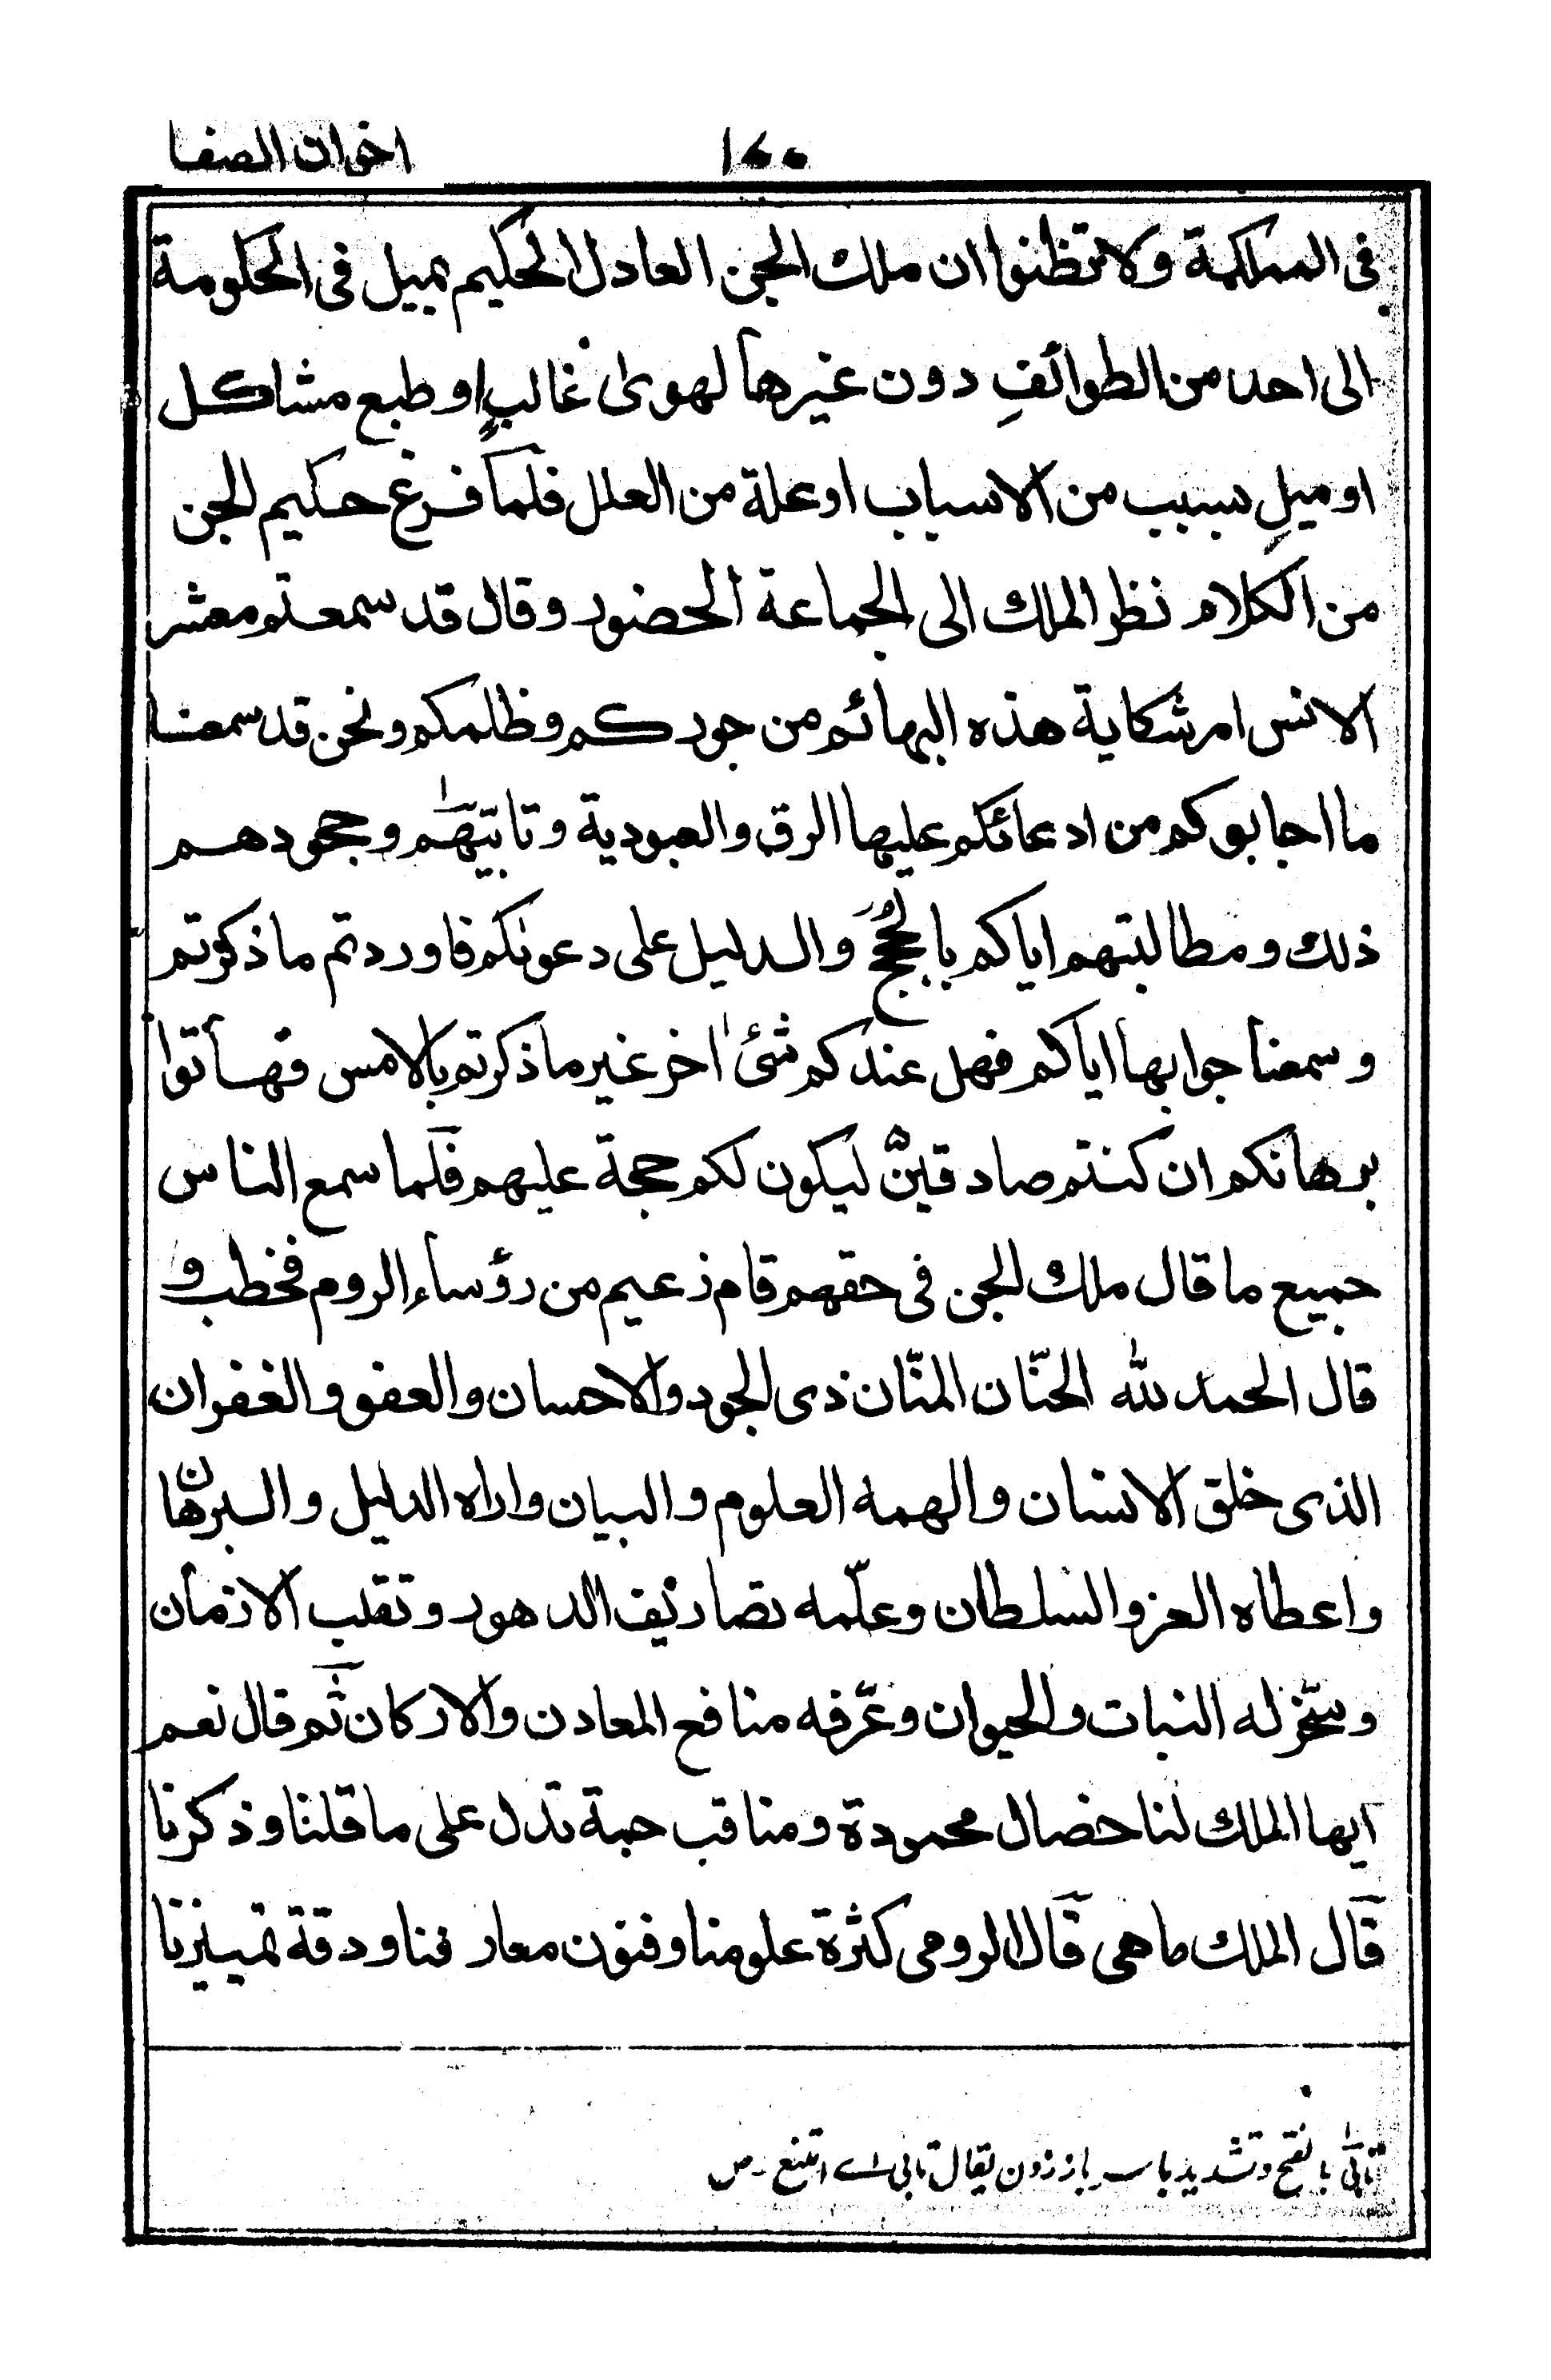 اخوان الصفا
فى المحاكمة ولا تظنوا ان ملك الجن العادل الحكيم يميل فى الحكومة
الى احد من الطوائفِ دون غيرها لهوىٰ غالبٍ او طبع مشاكل
او ميلٍ بسبب من الاسباب او علة من العلل فلما فرغ حكيم الجن
من الكلام نظر الملك الى الجماعة الحضور وقال قد سمعتم معشر
الانس امر شكاية هذه البهائم من جوركم وظلمكم ونحن قد سمعنا
ما اجابوكم من ادعائكم عليها الرق والعبودية وتابّيهم وجحودهم
ذلك ومطالبتهم اياكم بالحُجَج والدليل على دعوٰىكم فاوردتم ما ذكرتم
وسمعنا جوابها اياكم فهل عندكم شئ اٰخر غير ما ذكرتم بالامس فهاتوا
برهانكم ان كنتم صادقين ليكون لكم حجة عليهم فلما سمع الناس
جميع ما قال ملك الجن فى حقهم قام زعيم من رؤساء الروم فخطب و
قال الحمد لله الحنّان المنّان ذى الجود والاحسان والعفو والغفران
الذى خلق الانسان والهمه العلوم والبيان واراه الدليل والبرهان
واعطاه العز والسلطان وعلّمه تصاريف الدهور وتقلب الازمان
وسخّر له النبات والحيوان وعرّفه منافع المعادن والاركان ثم قال نعم
ايها الملك لنا خصال محمودة ومناقب جمة تدل على ما قلنا وذكرنا
قال الملك ما هى قال الرومى كثرة علومنا وفنون معارفنا ودقة تمييزنا
تابّى بالفتح وتشديد با باز زدن يقال تابى اے امتنع ـ ص